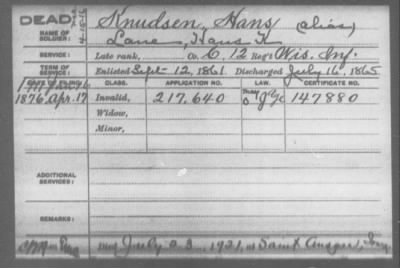 DEAD Knudsen, Hans (alias)
NAME OF SOLDIER: Lane, Hans K
SERVICE: Late rank, Co. C, 12 Reg't Wis. Inf.
TERM OF SERVICE: Enlisted Sept 12, 1861 Discharged July 16, 1865
DATE OF FILING. CLASS. APPLICATION NO. LAW. CERTIFICATE NO.
1876 Apr. 17 Invalid, 217,640 147880
Widow,
Minor,
ADDITIONAL SERVICES:
REMARKS:
July 1921, at Saint Ansgar,